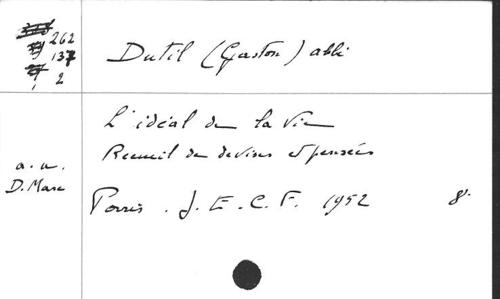 262
137
2
Dutil (Gaston) abbé
L'idéal de la Vie
Recueil de devises et pensées
a. u.
D. Marc
Paris. J. E. C. F. 1952 8°